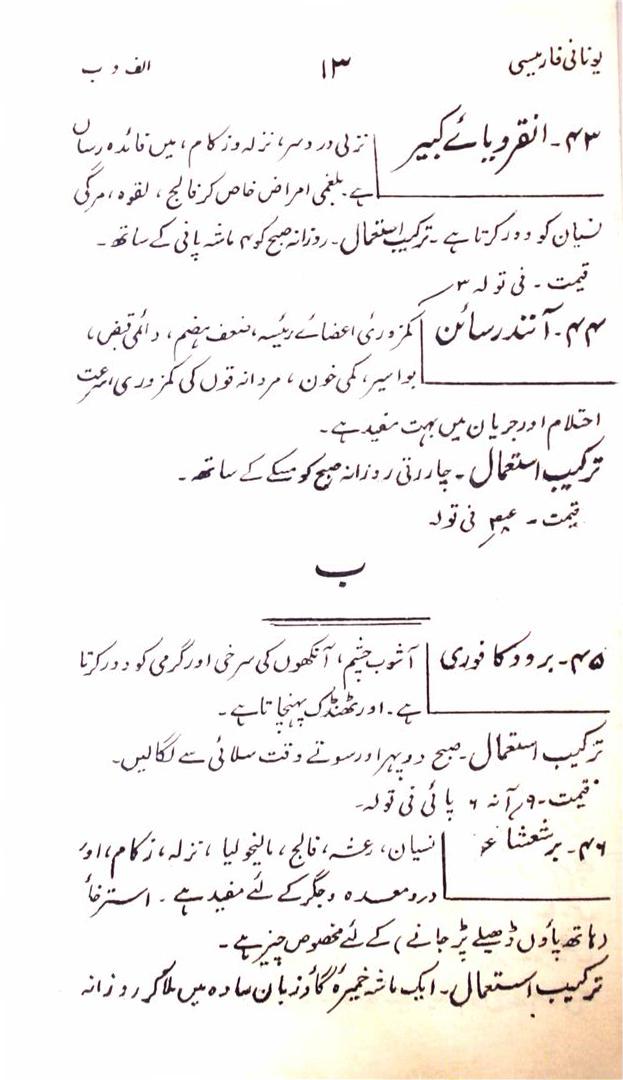 یونانی فارمیسی ۱۳ الف و ب
۴۳۔ انقرویائے کبیر نزلی درد سر، نزلہ و زکام، میں فائدہ رساں
ہے۔ بلغمی امراض خاص کر فالج، لقوہ، مرگی
نسیان کو دور کرتا ہے۔ ترکیب استعمال۔ روزانہ صبح کو ۴ ماشہ پانی کے ساتھ۔
قیمت۔ فی تولہ ۳
۴۴۔ آنند رسائن کمزوری اعضائے رئیسہ، ضعف ہضم، دائمی قبض،
بواسیر، کمی خون، مردانہ قوں کی کمزوری، سرعت
احتلام اور جریان میں بہت مفید ہے۔
ترکیب استعمال۔ چار رتی روزانہ صبح کو مسکے کے ساتھ۔
قیمت۔ فی تولہ
ب
۴۵۔ برود کافوری آشوب چشم، آنکھوں کی سرخی اور گرمی کو دور کرتا
ہے۔ اور ٹھنڈک پہنچاتا ہے۔
ترکیب استعمال۔ صبح دوپہر اور سوتے وقت سلائی سے لگالیں۔
قیمت۔ ۹ر آنہ ۶ پائی فی تولہ۔
۴۶۔ برشعشاء نسیان، رعشہ، فالج، مالیخولیا، نزلہ، زکام، اور
درد معدہ و جگر کے لئے مفید ہے۔ استرخأ
(ہاتھ پاؤں ڈھیلے پڑ جانے) کے لئے مخصوص چیز ہے۔
ترکیب استعمال۔ ایک ماشہ خمیرۂ گاؤزبان سادہ میں ملا کر روزانہ